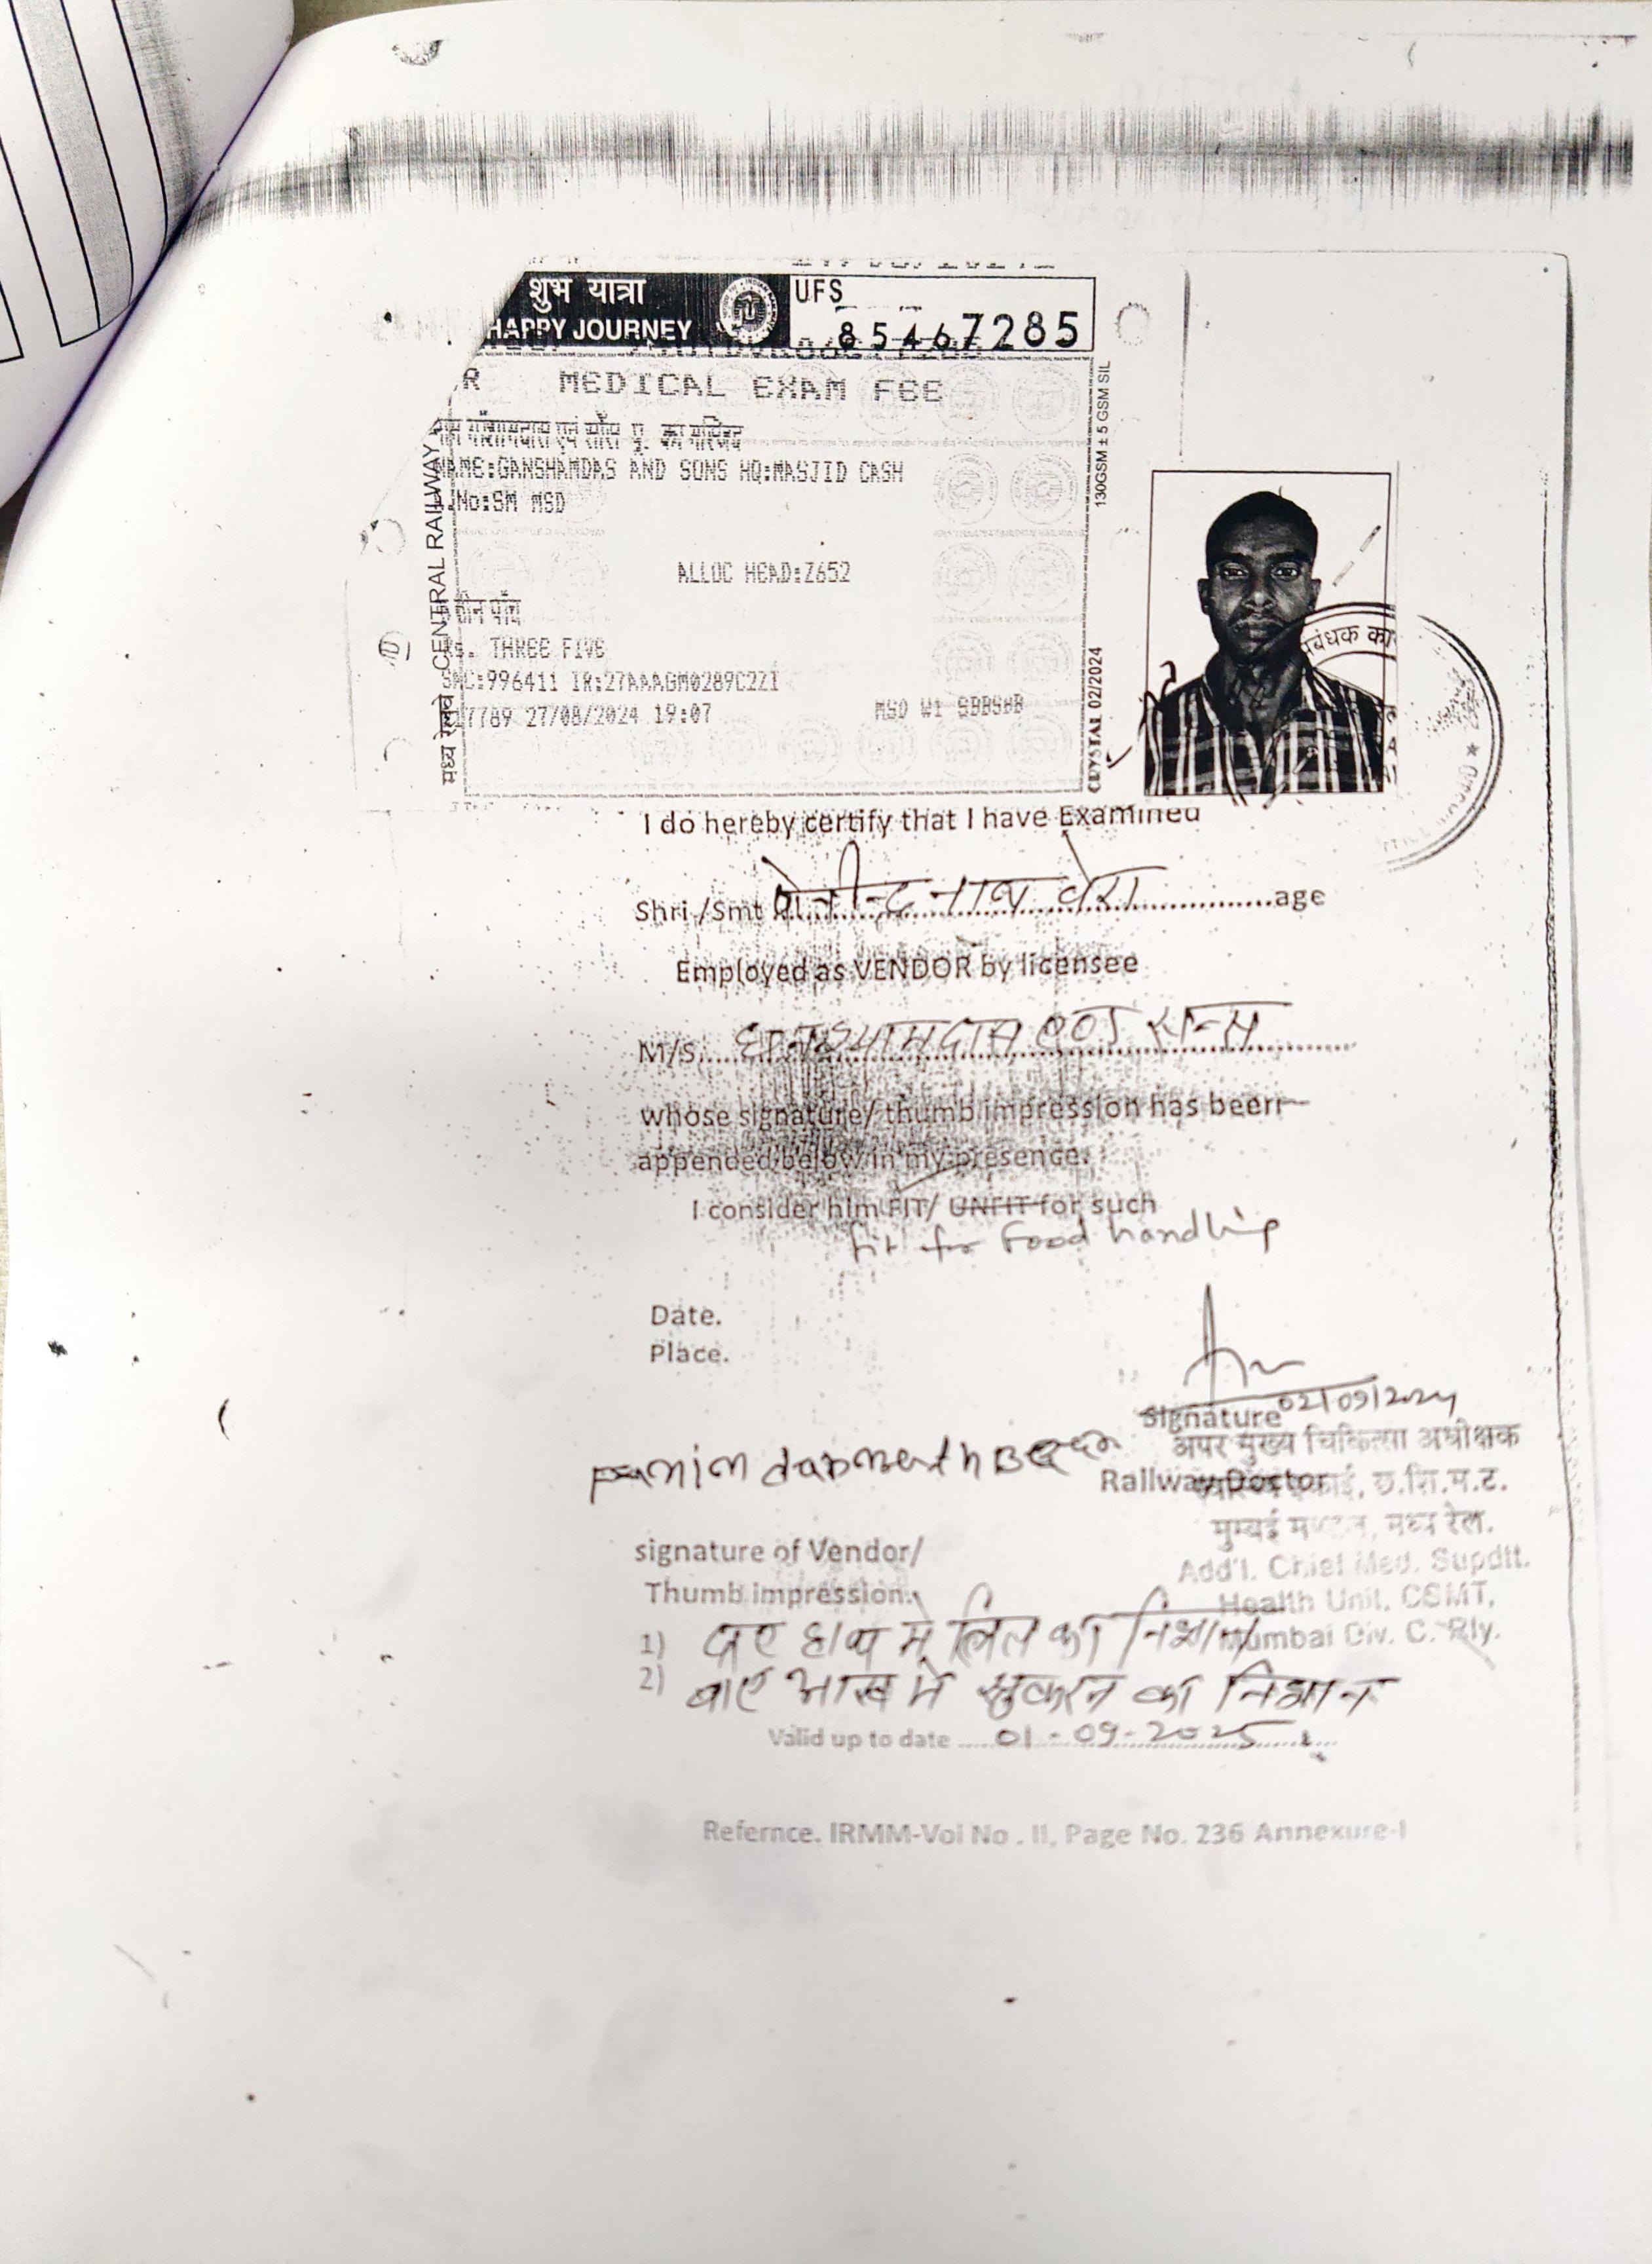 शुभ यात्रा
HAPPY JOURNEY
UFS
85467285
R MEDICAL EXAM FEE
NAME:GANSHAMDAS AND SONS HQ:MASJID CASH
No:SM MSD
ALLOC HEAD:Z652
तीन पाँच
Rs. THREE FIVE
SAC:996411 IR:27AAAGM0289C2Z1
7789 27/08/2024 19:07
MSD W1
मध्य रेलवे CENTRAL RAILWAY
130GSM ± 5 GSM SIL
CRYSTAL 02/2024
प्रबंधक
I do hereby certify that I have Examined
Shri /Smt फनीन्द्र नाथ बेरा age
Employed as VENDOR by licensee
M/S. घनश्यामदास एण्ड सन्स
whose signature/ thumb impression has been
appended below in my presence.
I consider him FIT/ UNFIT for such
fit for Food handling
Date.
Place.
02/09/2024
Signature
अपर मुख्य चिकित्सा अधीक्षक
Railway Doctor
छ.शि.म.ट.
मुम्बई मण्डल, मध्य रेल.
signature of Vendor/
Add'l. Chief Med. Supdtt.
Thumb impression.
Health Unit, CSMT,
Mumbai Div. C. Rly.
1) हाथ में का निशान
2) बाए आख में का निशान
Valid up to date 01-09-2025
Refernce. IRMM-Vol No . II, Page No. 236 Annexure-I